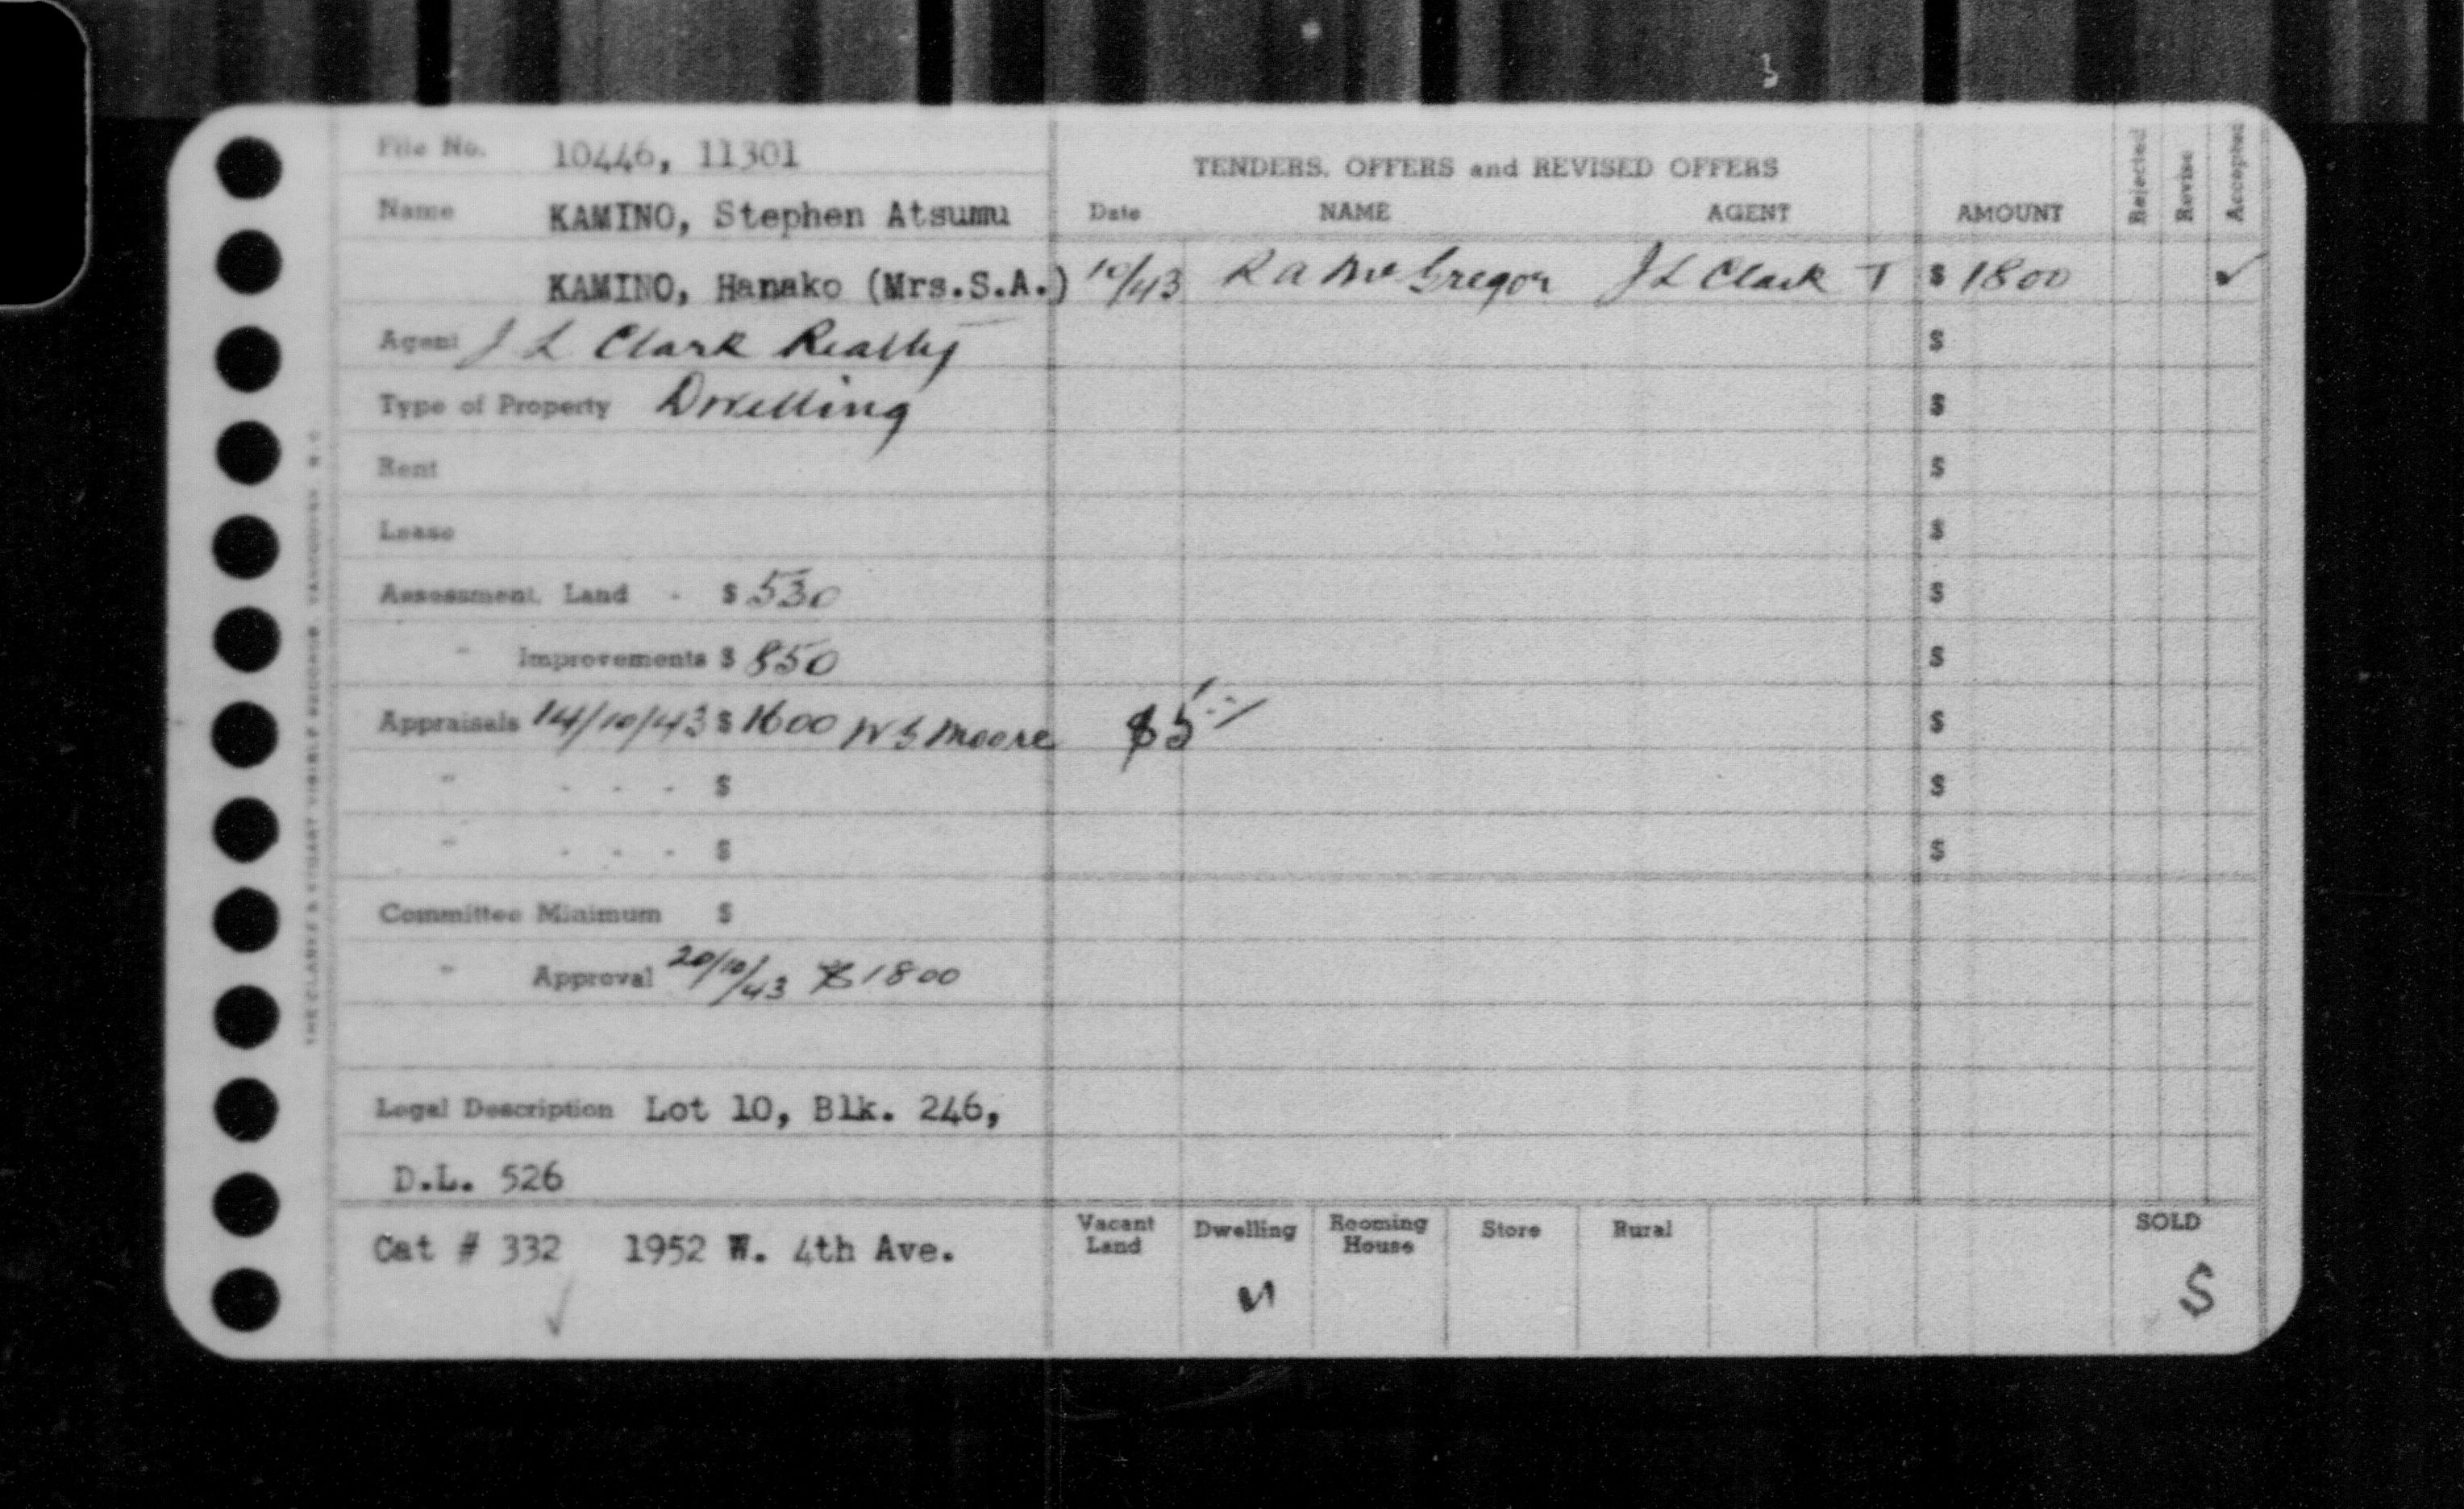 File No. 10446, 11301
Name KAMINO, Stephen Atsumu
KAMINO, Hanako (Mrs.S.A.)
Agent J L Clark Realty
Type of Property Dwelling
Rent
Lease
Assessment, Land - $ 530
" Improvements $ 850
Appraisals 14/10/43 $ 1600 W S Moore $5
" - - - $
" - - - $
Committee Minimum $
" Approval 20/10/43 $1800
Legal Description Lot 10, Blk. 246,
D.L. 526
Cat # 332 1952 W. 4th Ave.
TENDERS, OFFERS and REVISED OFFERS
Date NAME AGENT AMOUNT Rejected Revise Accepted
10/43 R A McGregor J L Clark T $ 1800 ✓
$
$
$
$
$
$
$
$
$
Vacant Land Dwelling Rooming House Store Rural SOLD
✓ S